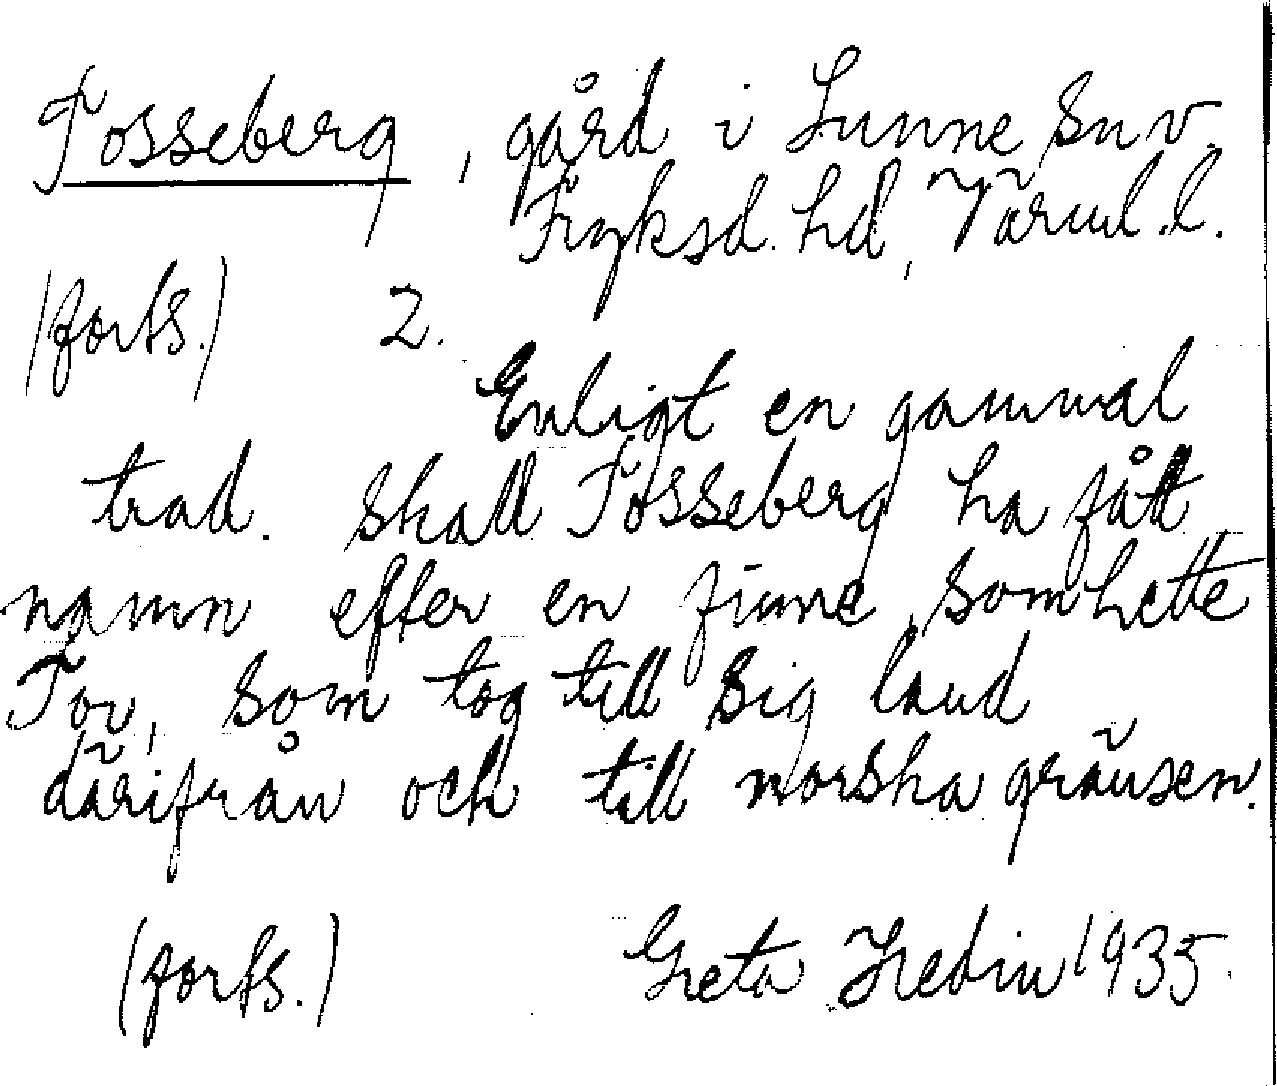 Tosseberg, gård i Sunne sn v.
Fryksd. hd, Värml. l.
(forts.) 2.
Enligt en gammal
trad. skall Tosseberg ha fått
namn efter en finne, som hette
Tov, som tog till sig land
därifrån och till norska gränsen.
(forts.) Greta Hedin 1935.